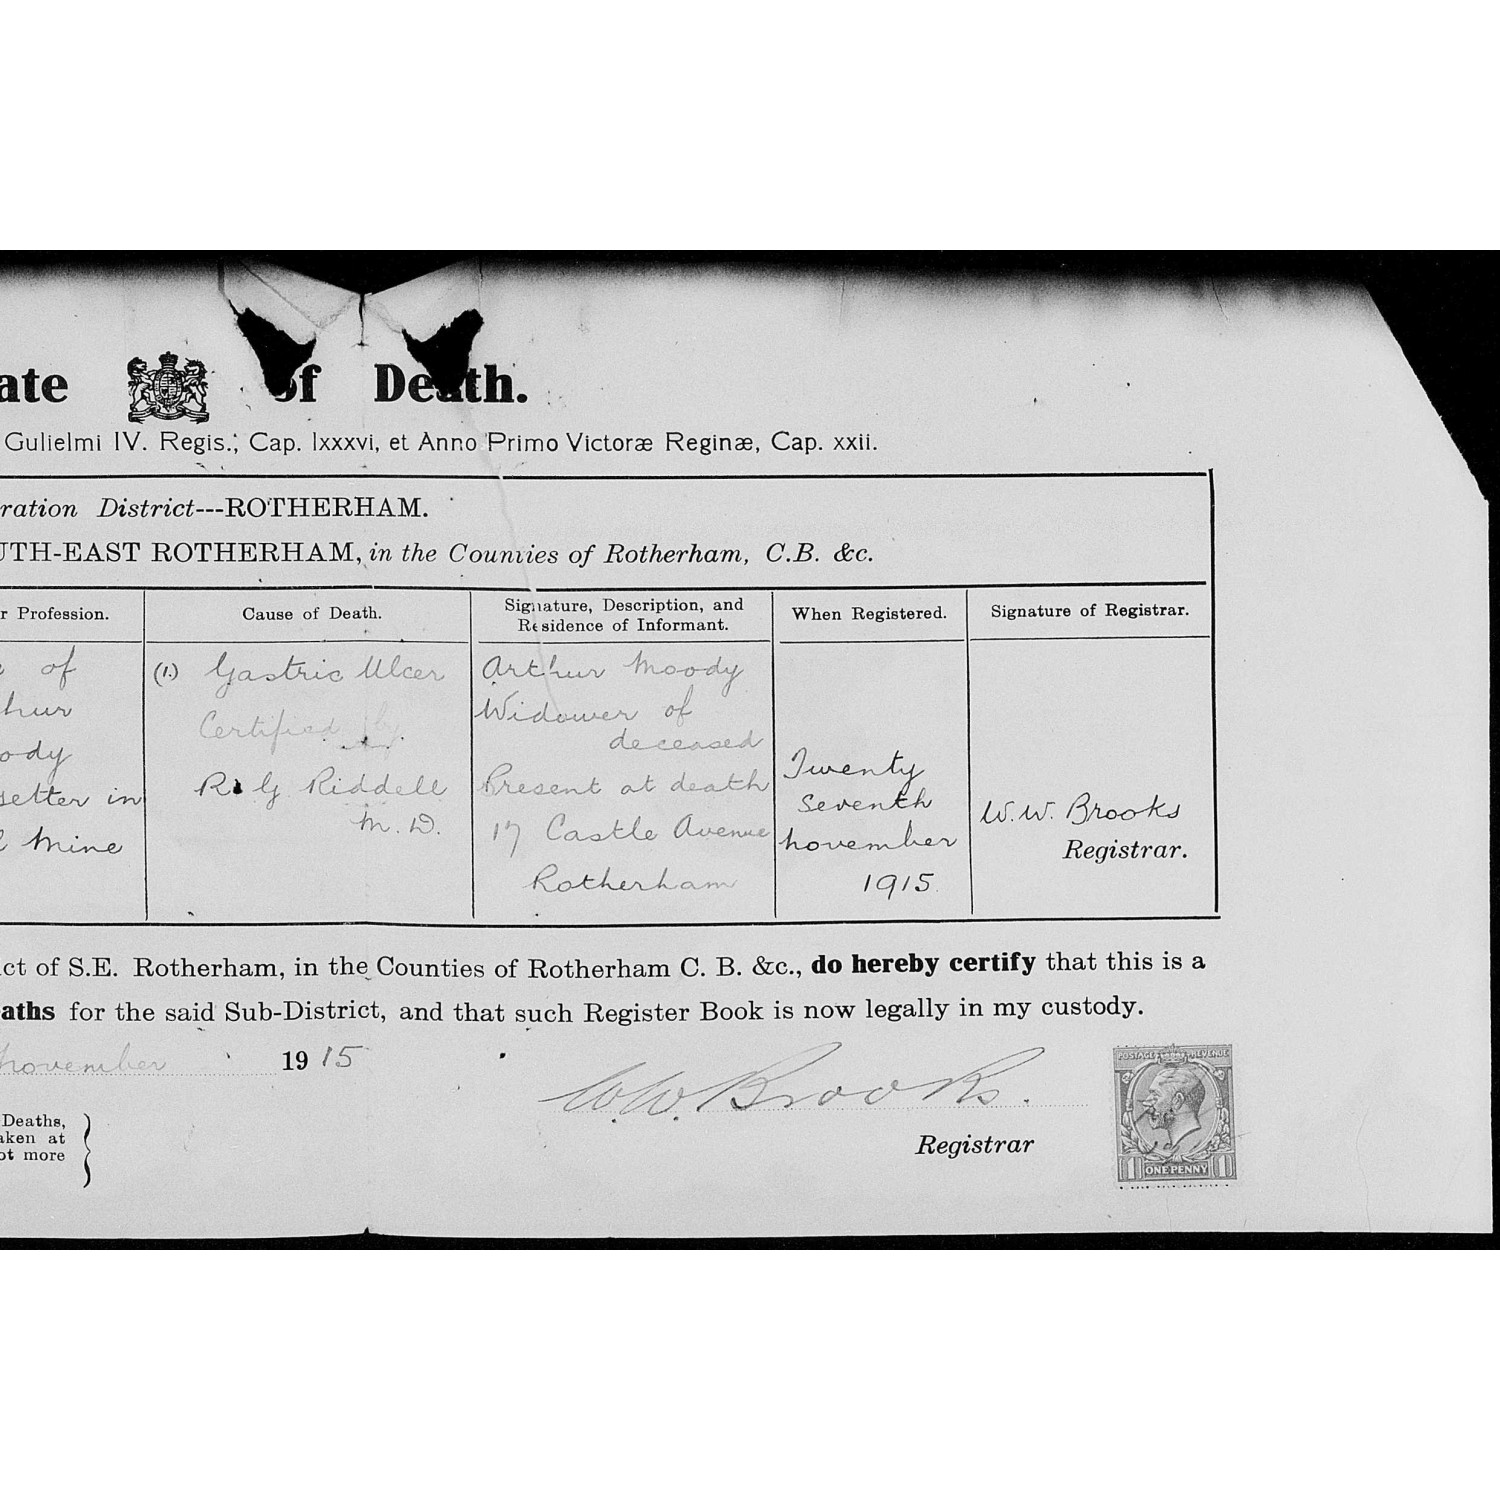 ate of Death.
Gulielmi IV. Regis., Cap. lxxxvi, et Anno Primo Victoræ Reginæ, Cap. xxii.
ration District---ROTHERHAM.
UTH-EAST ROTHERHAM, in the Counties of Rotherham, C.B. &c.
r Profession.
Cause of Death.
Signature, Description, and
Residence of Informant.
When Registered.
Signature of Registrar.
e of
thur
ody
setter in
l Mine
(1.) Gastric Ulcer
Certified by
R. G Riddell
M.D.
Arthur Moody
Widower of
deceased
Present at death
17 Castle Avenue
Rotherham
Twenty
Seventh
November
1915
W. W. Brooks
Registrar.
ict of S.E. Rotherham, in the Counties of Rotherham C. B. &c., do hereby certify that this is a
eaths for the said Sub-District, and that such Register Book is now legally in my custody.
November 1915
W. W. Brooks.
Registrar
Deaths,
aken at
ot more
POSTAGE REVENUE
1 ONE PENNY 1